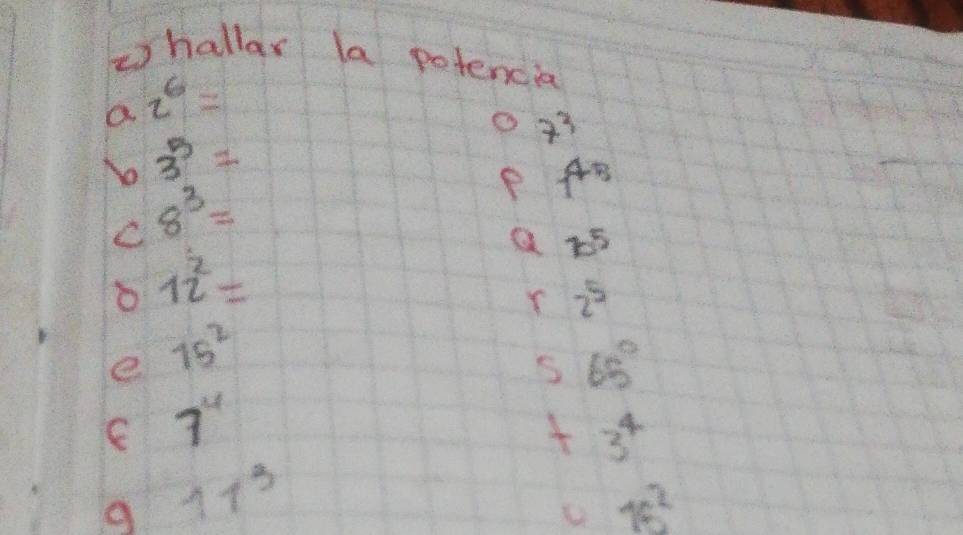 2) hallar la potencia
a 2⁶ =
b 3⁵ =
c 8³ =
d 12² =
e 15²
f 7⁴
g 11³
o 7³
p
q
r 2⁵
s 65⁰
t 3⁴
u 15²